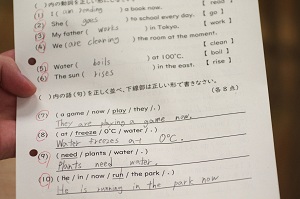 ( )内の動詞を正しい形にし
(1) I ( am reading ) a book now. [ read ]
(2) She ( goes ) to school every day. [ go ]
(3) My father ( works ) in Tokyo. [ work ]
(4) We ( are cleaning ) the room at the moment. [ clean ]
(5) Water ( boils ) at 100℃. [ boil ]
(6) The sun ( rises ) in the east. [ rise ]
( )内の語(句)を正しく並べ、下線部は正しい形で書きなさい。 (各8点)
(7) ( a game / now / play / they / . )
They are playing a game now.
(8) ( at / freeze / 0℃ / water / . )
Water freezes at 0℃.
(9) ( need / plants / water / . )
Plants need water.
(10) ( he / in / now / run / the park / . )
He is running in the park now